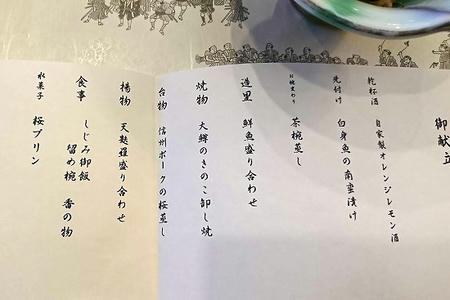 御献立
乾杯酒 自家製オレンジレモン酒
先付け 白身魚の南蛮漬け
茶碗蒸し
造里 鮮魚盛り合わせ
焼物 大鱒のきのこ卸し焼
台物 信州ポークの桜蒸し
揚物 天麩羅盛り合わせ
食事 しじみ御飯
留め椀 香の物
水菓子 桜プリン